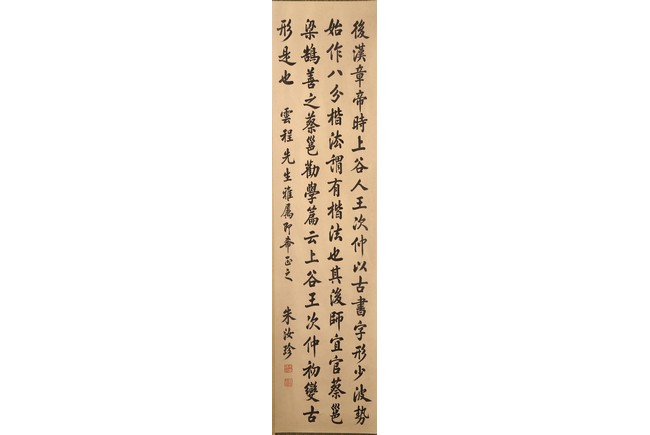 後漢章帝時上谷人王次仲以古書字形少波勢
始作八分楷法謂有楷法也其後師宜官蔡邕
梁鵠善之蔡邕勸學篇云上谷王次仲初變古
形是也 雲程先生雅屬即希正之 朱汝珍